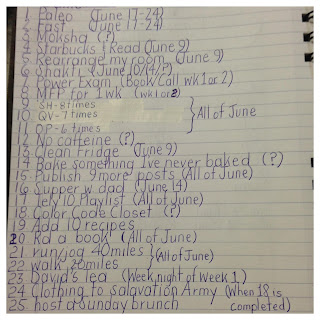 1. Paleo (June 17-24)
2. Fast (June 17-24)
3. Moksha (?)
4. Starbucks & Read (June 9)
5. Rearrange my room (June 9)
6. Shakti & (June 10/(4/?)
7. Power Exam (Book/Call wk 1 or 2)
8. MFP for 1 wk (wk 1 or 2)
9 SH-8 times
10. QV-7 times } All of June
11. OP-6 times
12. No caffeine (?)
13. Clean Fridge (June 9)
14. Bake something I've never baked (?)
15. Publish 9 more posts (All of June)
16. Supper w dad (June 14)
17. Playlist (All of June)
18. Color Code Closet (?)
19. Add 10 recipes
20. Rd a book (All of June)
21. run/jog 40 miles } (All of June)
22. walk 20 miles
23. David's Tea (Week night of Week 1)
24. Clothing to Salavation Army (When 18 is completed)
25. host a Sunday brunch